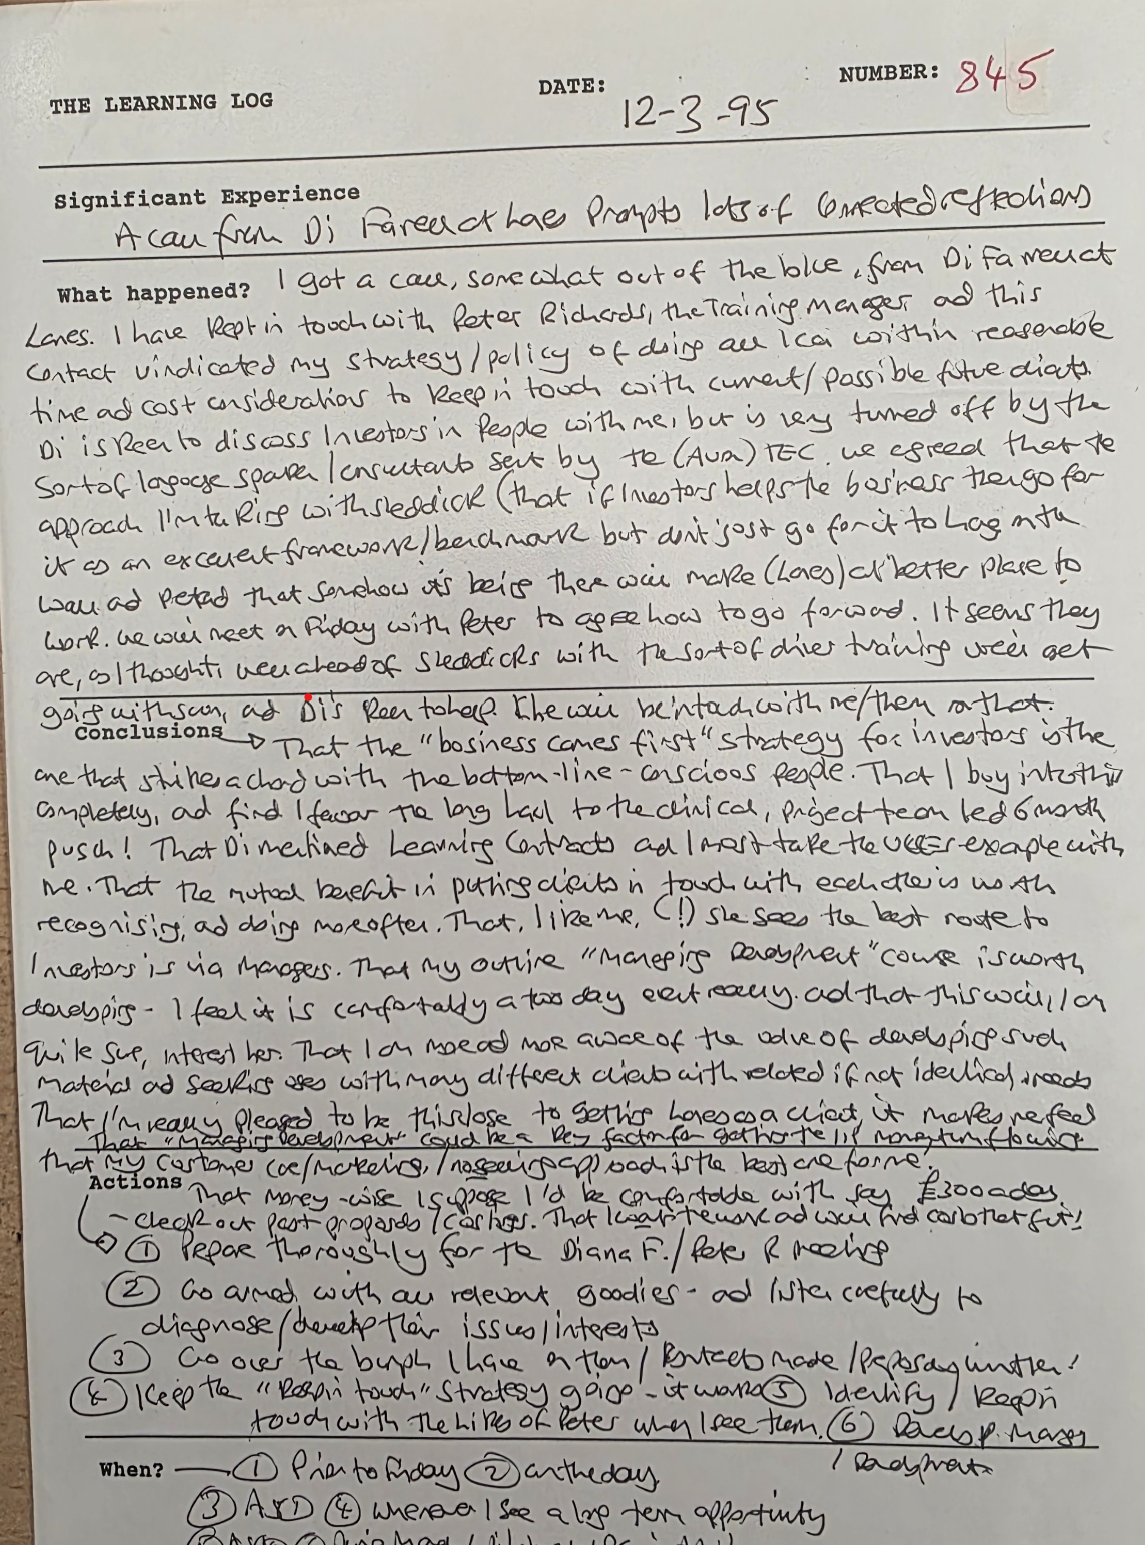 THE LEARNING LOG
DATE:
12-3-95
NUMBER: 845
Significant Experience
A call from Di Farr at Lanes Prompts lots of connected reflections
What happened? I got a call, somewhat out of the blue, from Di Farr at
Lanes. I have kept in touch with Peter Richards, the Training Manager, ad this
contact vindicated my strategy/policy of doing all I can within reasonable
time ad cost considerations to keep in touch with current/possible future clients.
Di is keen to discuss Investors in People with me, but is very turned off by the
sort of language spoken/consultants sent by the (Avon) TEC. We agreed that the
approach I'm taking with Sleddick (that if Investors helps the business then go for
it as an excellent framework/benchmark but don't just go for it to hang on the
wall ad pretend that somehow it's being there will make (Lanes) a better place to
work. We will meet on Friday with Peter to agree how to go forward. It seems they
are, as I thought, well ahead of Sleddicks with the sort of driver training we'll get
going with soon, ad Di's keen to help. She will be in touch with me/them on that.
Conclusions → That the "business comes first" strategy for investors is the
one that strikes a chord with the bottom-line-conscious people. That I buy into this
completely, ad find I favour the long haul to the clinical, project team led 6 month
push! That Di mentioned Learning Contracts ad I must take the example with
me. That the mutual benefit in putting clients in touch with each other is worth
recognising, ad doing more often. That, like me, (!) she sees the best route to
Investors is via Managers. That my outline "Managing Development" course is worth
developing - I feel it is comfortably a two day event really. ad that this will, I am
quite sure, interest her. That I am more ad more aware of the value of developing such
material ad seeking uses with many different clients with related if not identical needs
That I'm really pleased to be this close to getting Lanes as a client, it makes me feel
That "Managing Development" could be a key factor for getting the IIP momentum flowing
that my customer care/marketing/ approach is the best one for me.
Actions That money-wise I suppose I'd be comfortable with say £300 a day.
- check out past proposals/ That I want the work ad will find cash that fits!
① Prepare thoroughly for the Diana F./Peter R meeting
② Go armed with all relevant goodies - ad listen carefully to
diagnose/develop their issues/interests
③ Go over the bumph I have on them/contacts made/
④ Keep the "keep in touch" strategy going - it works ⑤ Identify/keep in
touch with the likes of Peter when I see them. ⑥ Develop Manag
/Development
When? → ① Prior to Friday ② on the day
③ ASAP ④ whenever I see a long term opportunity